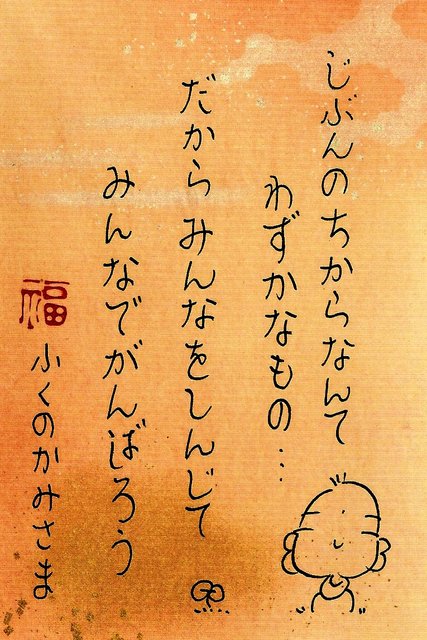 じぶんのちからなんて
わずかなもの…
だからみんなをしんじて
みんなでがんばろう
福
ふくのかみさま